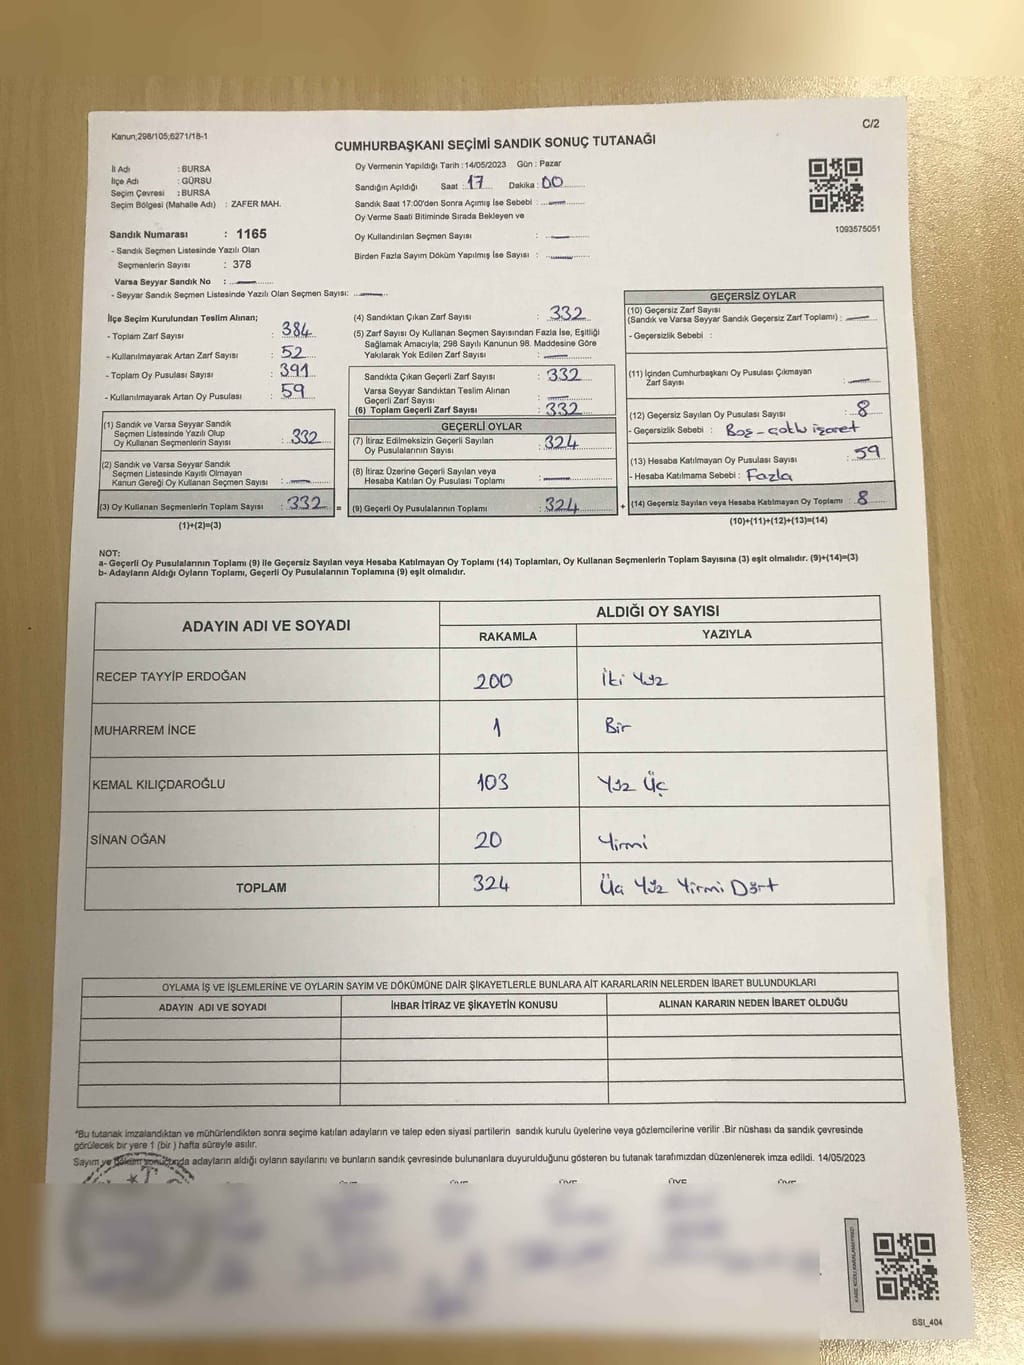 Kanun;298/105;6271/18-1
C/2
CUMHURBAŞKANI SEÇİMİ SANDIK SONUÇ TUTANAĞI
İl Adı : BURSA
İlçe Adı : GÜRSU
Seçim Çevresi : BURSA
Seçim Bölgesi (Mahalle Adı) : ZAFER MAH.
Sandık Numarası : 1165
- Sandık Seçmen Listesinde Yazılı Olan
Seçmenlerin Sayısı : 378
Varsa Seyyar Sandık No :
- Seyyar Sandık Seçmen Listesinde Yazılı Olan Seçmen Sayısı:
Oy Vermenin Yapıldığı Tarih :14/05/2023 Gün : Pazar
Sandığın Açıldığı Saat : 17 Dakika : 00
Sandık Saat 17:00'den Sonra Açımış İse Sebebi :
Oy Verme Saati Bitiminde Sırada Bekleyen ve
Oy Kullandırılan Seçmen Sayısı :
Birden Fazla Sayım Döküm Yapılmış İse Sayısı :
1093575051
İlçe Seçim Kurulundan Teslim Alınan;
- Toplam Zarf Sayısı : 384
- Kullanılmayarak Artan Zarf Sayısı : 52
- Toplam Oy Pusulası Sayısı : 391
- Kullanılmayarak Artan Oy Pusulası : 59
(1) Sandık ve Varsa Seyyar Sandık
Seçmen Listesinde Yazılı Olup
Oy Kullanan Seçmenlerin Sayısı : 332
(2) Sandık ve Varsa Seyyar Sandık
Seçmen Listesinde Kayıtlı Olmayan
Kanun Gereği Oy Kullanan Seçmen Sayısı :
(3) Oy Kullanan Seçmenlerin Toplam Sayısı : 332 =
(1)+(2)=(3)
(4) Sandıktan Çıkan Zarf Sayısı : 332
(5) Zarf Sayısı Oy Kullanan Seçmen Sayısından Fazla İse, Eşitliği
Sağlamak Amacıyla; 298 Sayılı Kanunun 98. Maddesine Göre
Yakılarak Yok Edilen Zarf Sayısı :
Sandıkta Çıkan Geçerli Zarf Sayısı : 332
Varsa Seyyar Sandıktan Teslim Alınan
Geçerli Zarf Sayısı :
(6) Toplam Geçerli Zarf Sayısı : 332
GEÇERLİ OYLAR
(7) İtiraz Edilmeksizin Geçerli Sayılan
Oy Pusulalarının Sayısı : 324
(8) İtiraz Üzerine Geçerli Sayılan veya
Hesaba Katılan Oy Pusulası Toplamı :
(9) Geçerli Oy Pusulalarının Toplamı : 324 +
GEÇERSİZ OYLAR
(10) Geçersiz Zarf Sayısı
(Sandık ve Varsa Seyyar Sandık Geçersiz Zarf Toplamı) :
- Geçersizlik Sebebi :
(11) İçinden Cumhurbaşkanı Oy Pusulası Çıkmayan
Zarf Sayısı :
(12) Geçersiz Sayılan Oy Pusulası Sayısı : 8
- Geçersizlik Sebebi : Boş - çoklu işaret
(13) Hesaba Katılmayan Oy Pusulası Sayısı : 59
- Hesaba Katılmama Sebebi : Fazla
(14) Geçersiz Sayılan veya Hesaba Katılmayan Oy Toplamı : 8
(10)+(11)+(12)+(13)=(14)
NOT:
a- Geçerli Oy Pusulalarının Toplamı (9) ile Geçersiz Sayılan veya Hesaba Katılmayan Oy Toplamı (14) Toplamları, Oy Kullanan Seçmenlerin Toplam Sayısına (3) eşit olmalıdır. (9)+(14)=(3)
b- Adayların Aldığı Oyların Toplamı, Geçerli Oy Pusulalarının Toplamına (9) eşit olmalıdır.
ADAYIN ADI VE SOYADI
ALDIĞI OY SAYISI
RAKAMLA YAZIYLA
RECEP TAYYİP ERDOĞAN 200 İki Yüz
MUHARREM İNCE 1 Bir
KEMAL KILIÇDAROĞLU 103 Yüz Üç
SİNAN OĞAN 20 Yirmi
TOPLAM 324 Üç Yüz Yirmi Dört
OYLAMA İŞ VE İŞLEMLERİNE VE OYLARIN SAYIM VE DÖKÜMÜNE DAİR ŞİKAYETLERLE BUNLARA AİT KARARLARIN NELERDEN İBARET BULUNDUKLARI
ADAYIN ADI VE SOYADI İHBAR İTİRAZ VE ŞİKAYETİN KONUSU ALINAN KARARIN NEDEN İBARET OLDUĞU
*Bu tutanak imzalandıktan ve mühürlendikten sonra seçime katılan adayların ve talep eden siyasi partilerin sandık kurulu üyelerine veya gözlemcilerine verilir .Bir nüshası da sandık çevresinde
görülecek bir yere 1 (bir ) hafta süreyle asılır.
Sayım ve döküm sonucunda adayların aldığı oyların sayılarını ve bunların sandık çevresinde bulunanlara duyurulduğunu gösteren bu tutanak tarafımızdan düzenlenerek imza edildi. 14/05/2023
ÜYE ÜYE ÜYE ÜYE ÜYE
SSI_404